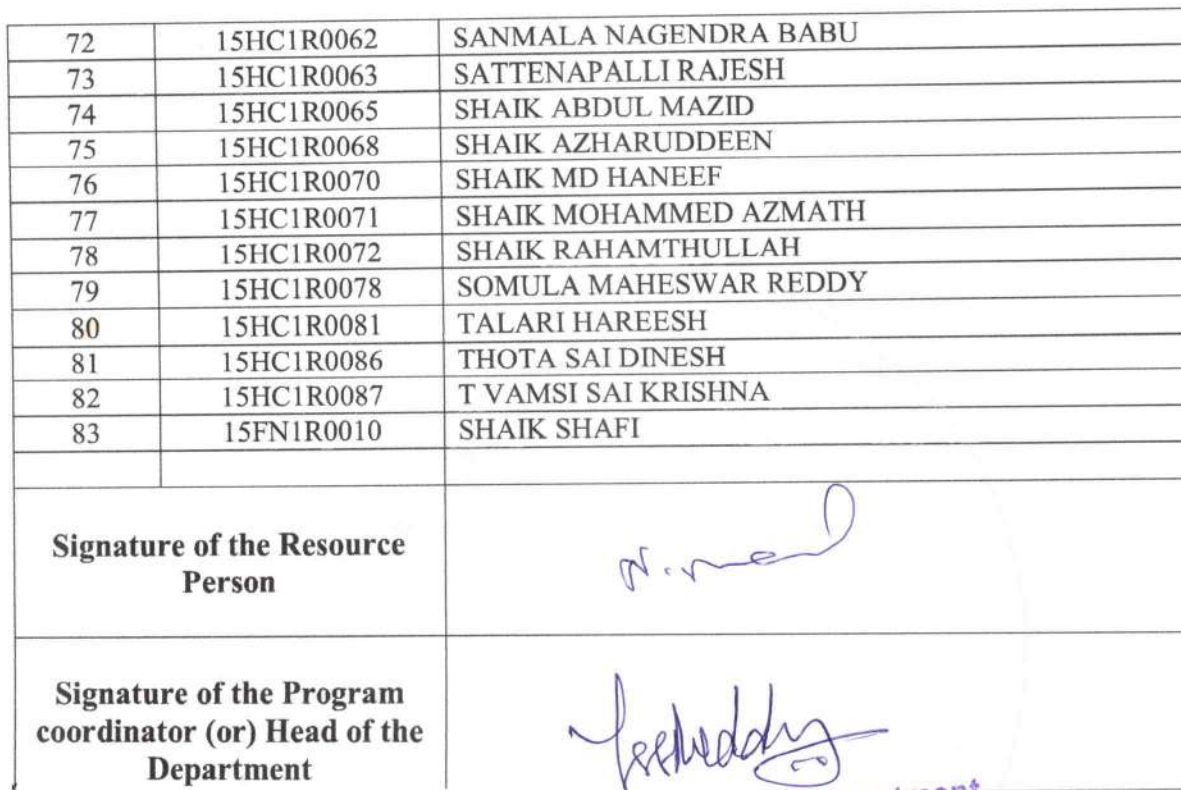 72 15HC1R0062 SANMALA NAGENDRA BABU
73 15HC1R0063 SATTENAPALLI RAJESH
74 15HC1R0065 SHAIK ABDUL MAZID
75 15HC1R0068 SHAIK AZHARUDDEEN
76 15HC1R0070 SHAIK MD HANEEF
77 15HC1R0071 SHAIK MOHAMMED AZMATH
78 15HC1R0072 SHAIK RAHAMTHULLAH
79 15HC1R0078 SOMULA MAHESWAR REDDY
80 15HC1R0081 TALARI HAREESH
81 15HC1R0086 THOTA SAI DINESH
82 15HC1R0087 T VAMSI SAI KRISHNA
83 15FN1R0010 SHAIK SHAFI
Signature of the Resource
Person
Signature of the Program
coordinator (or) Head of the
Department